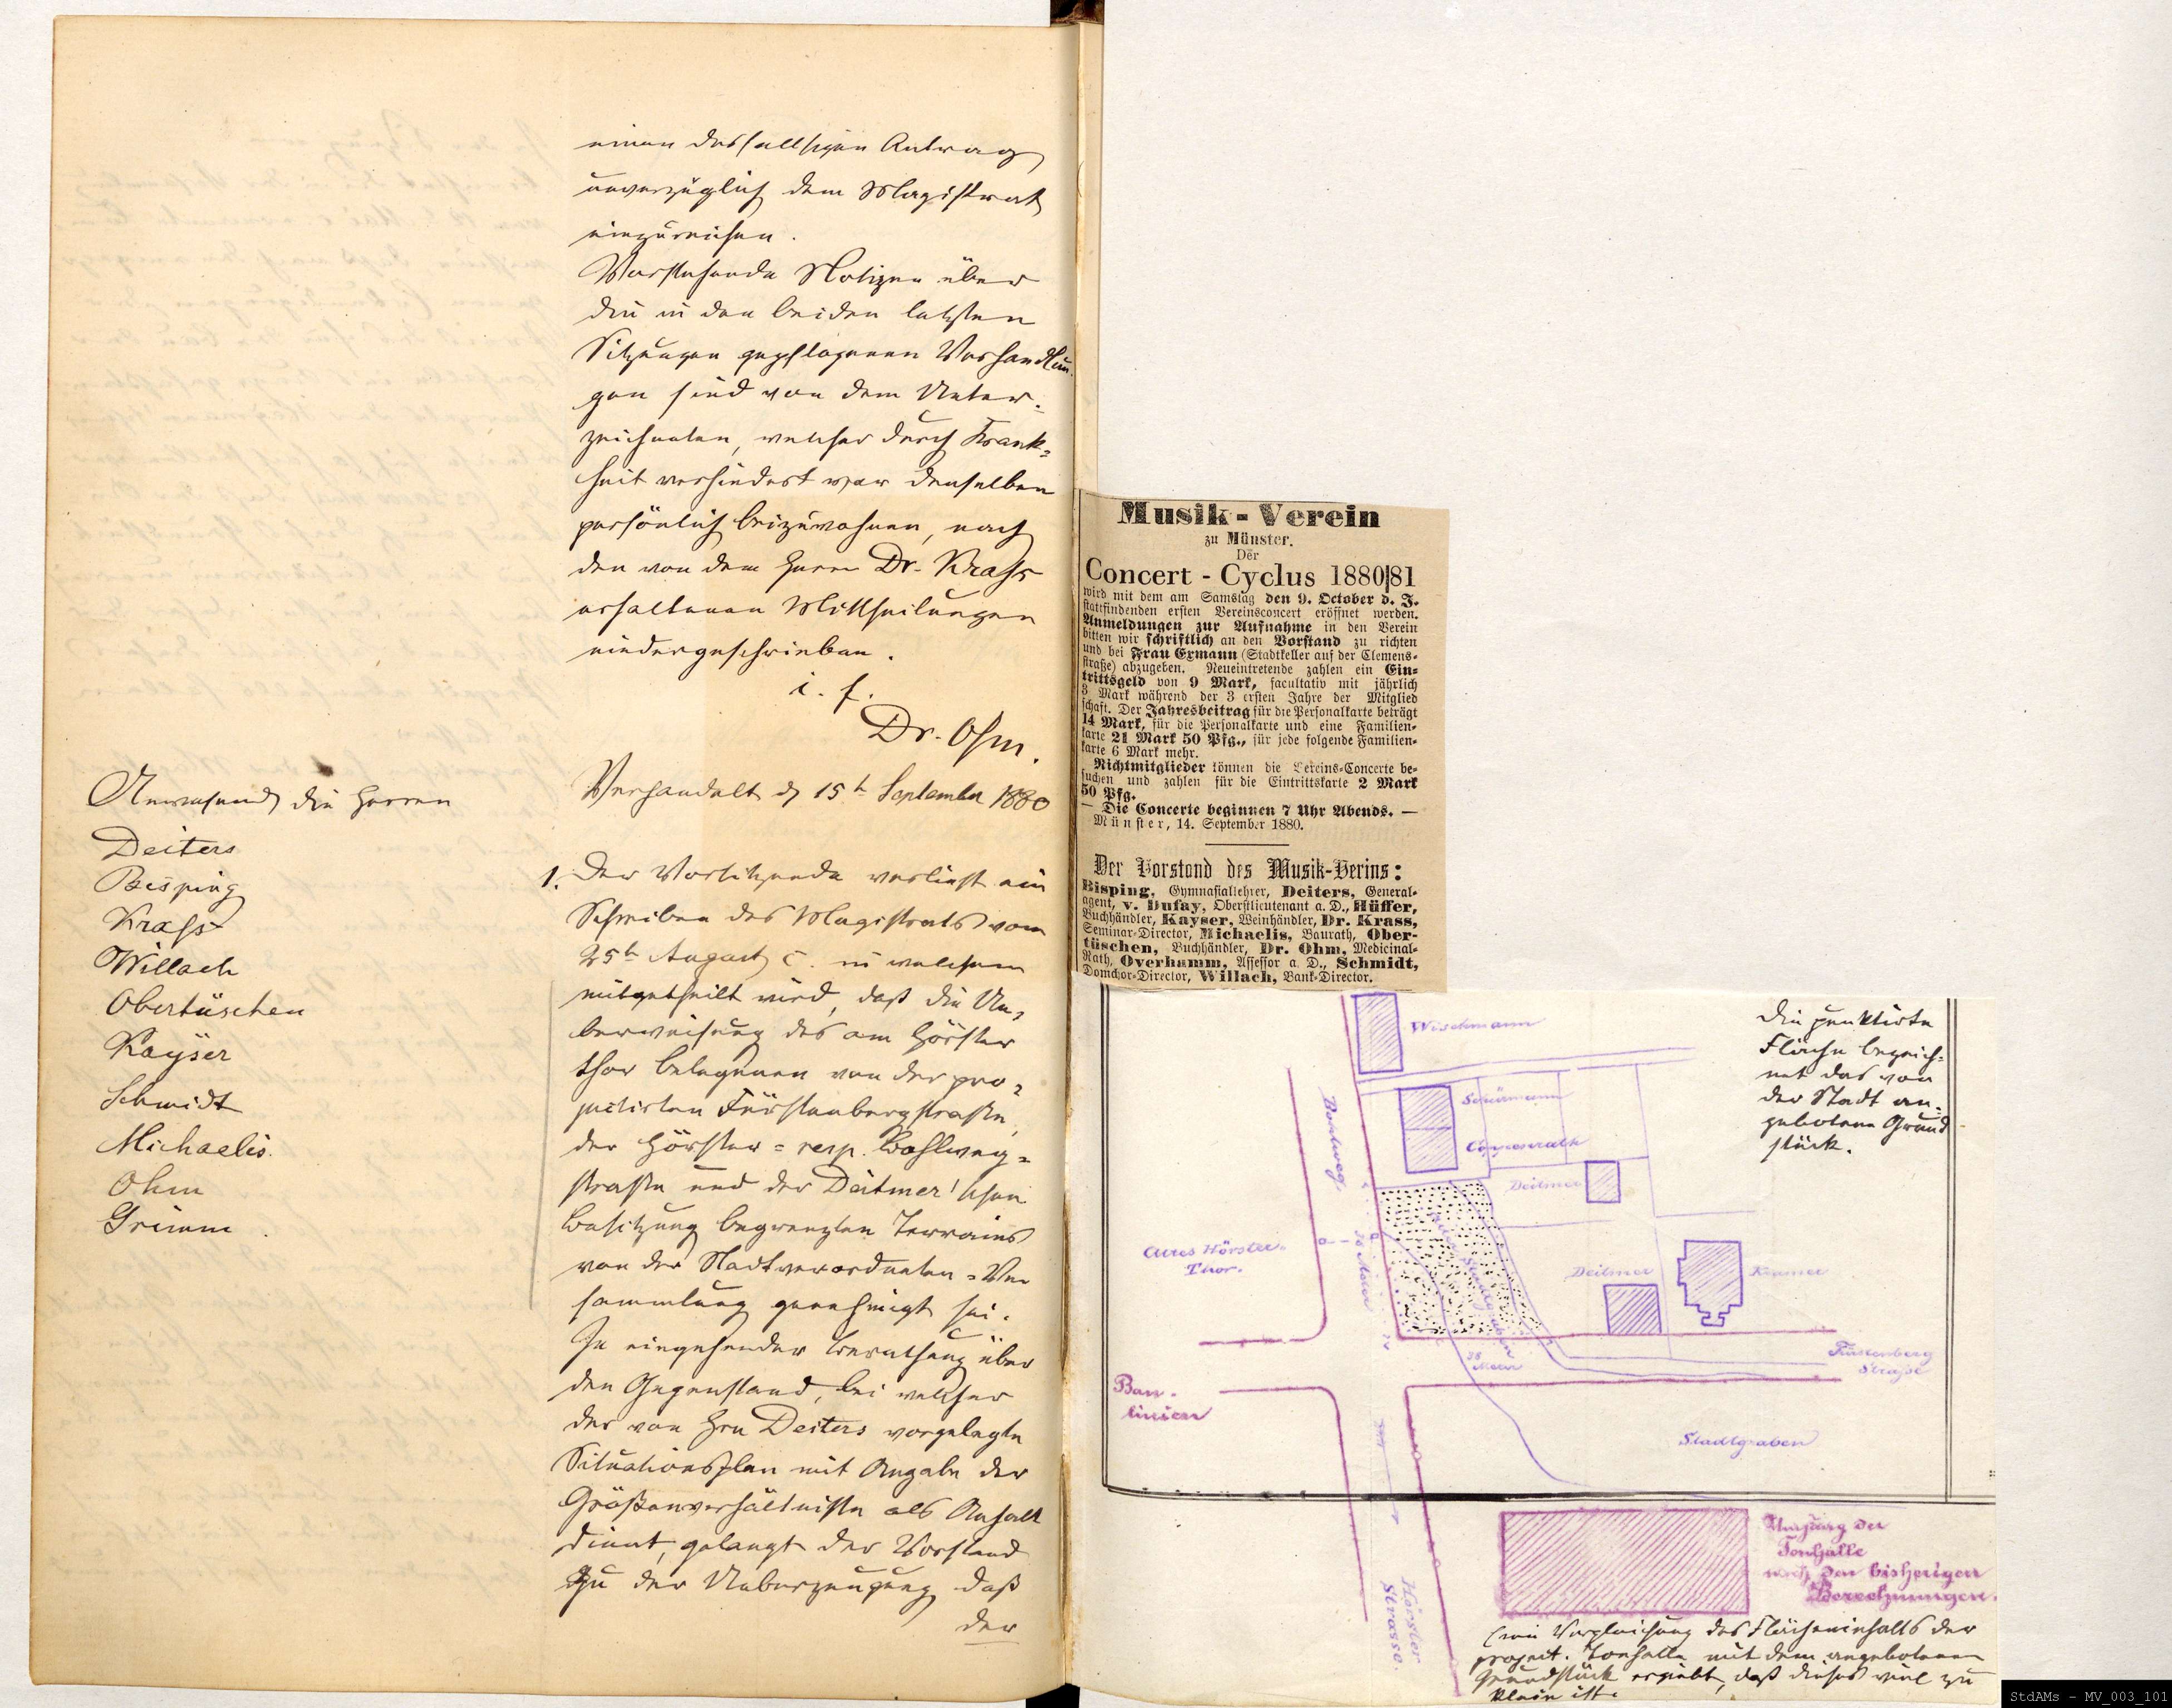 einen desfallsigen Antrag
unverzüglich dem Magistrat
einzureichen.
Vorstehende Notizen über
die in den beiden letzten
Sitzungen gepflogenen Verhandlun-
gen sind von dem Unter-
zeichneten, welcher durch Krank-
heit verhindert war denselben
persönlich beizuwohnen, nach
den von dem Herrn Dr. Krass
erhaltenen Mittheilungen
niedergeschrieben.
i. f.
Dr. Ohm.
Anwesend die Herren
Deiters
Bisping
Krass
Willach
Obertüschen
Kayser
Schmidt
Michaelis.
Ohm
Grimm.
Verhandelt d 15t September 1880
1. Der Vorsitzende verliest ein
Schreiben des Magistrats vom
25t August c. in welchem
mitgetheilt wird, daß die Ue-
berweisung des am Hörster
thor belegenen von der pro-
jectirten Fürstenbergstraße,
der Hörster- resp. Bohlweg-
straße und der Deitmer'schen
Besitzung begrenzten Terrains
von der Stadtverordneten-Ver
sammlung genehmigt sei.
In eingehender Berathung über
den Gegenstand, bei welcher
der von Hrn Deiters vorgelegte
Situationsplan mit Angabe der
Größenverhältnisse als Anhalt
dient, gelangt der Vorstand
zu der Ueberzeugung daß
der
Musik-Verein
zu Münster.
Der
Concert-Cyclus 1880/81
wird mit dem am Samstag den 9. October d. J.
stattfindenden ersten Vereinsconcert eröffnet werden.
Anmeldungen zur Aufnahme in den Verein
bitten wir schriftlich an den Vorstand zu richten
und bei Frau Exmann (Stadtkeller auf der Clemens-
straße) abzugeben. Neueintretende zahlen ein Ein-
trittsgeld von 9 Mark, facultativ mit jährlich
3 Mark während der 3 ersten Jahre der Mitglied
schaft. Der Jahresbeitrag für die Personalkarte beträgt
14 Mark, für die Personalkarte und eine Familien-
karte 21 Mark 50 Pfg., für jede folgende Familien-
karte 6 Mark mehr.
Nichtmitglieder können die Vereins-Concerte be-
suchen und zahlen für die Eintrittskarte 2 Mark
50 Pfg.
— Die Concerte beginnen 7 Uhr Abends. —
Münster, 14. September 1880.
Der Vorstand des Musik-Verins:
Bisping, Gymnasiallehrer, Deiters, General-
agent, v. Dufay, Oberstlieutenant a. D., Hüffer,
Buchhändler, Kayser, Weinhändler, Dr. Krass,
Seminar-Director, Michaelis, Baurath, Ober-
tüschen, Buchhändler, Dr. Ohm, Medicinal-
Rath, Overhamm, Assessor a. D., Schmidt,
Domchor-Director, Willach, Bank-Director.
Die punktirte
Fläche bezeich-
net das von
der Stadt an-
gebotene Grund
stück.
Wischmann
Schürmann
Coppenrath
Bohlweg.
Deitmer
Altes Hörster-
Thor.
36 Meter
Deitmer
Kramer
38
Meter
Fürstenberg
Straße
Bau-
linien
Stadtgraben
Hörster
Strasse.
Umfang der
Tonhalle
nach den bisherigen
Berechnungen.
Eine Vergleichung des Flächeninhalts der
project. Tonhalle mit dem angebotenen
Grundstück ergiebt, daß dieses viel zu
klein ist.
StdAMs - MV_003_101